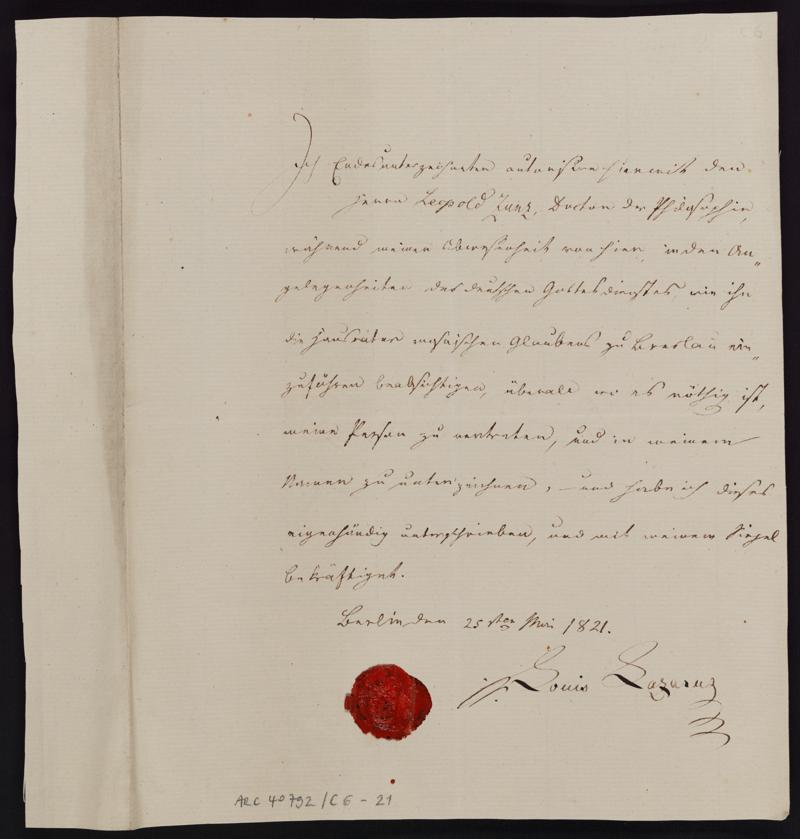 C6
Ich Endesunterzeichneter autorisire hiermit den
Herrn Leopold Zunz, Doctor der Philosophie,
während meiner Abwesenheit von hier, in den An„
gelegenheiten des deutschen Gottesdienstes, wie ihn
die Hausväter mosaischen Glaubens zu Breslau ein„
zuführen beabsichtigen, überall wo es nöthig ist,
meine Person zu vertreten, und in meinem
Namen zu unterzeichnen, – und habe ich dieses
eigenhändig unterschrieben, und mit meinem Siegel
bekräftiget.
Berlin den 25sten Mai 1821.
Louis Lazarus
ARC 4° 792/C6-21